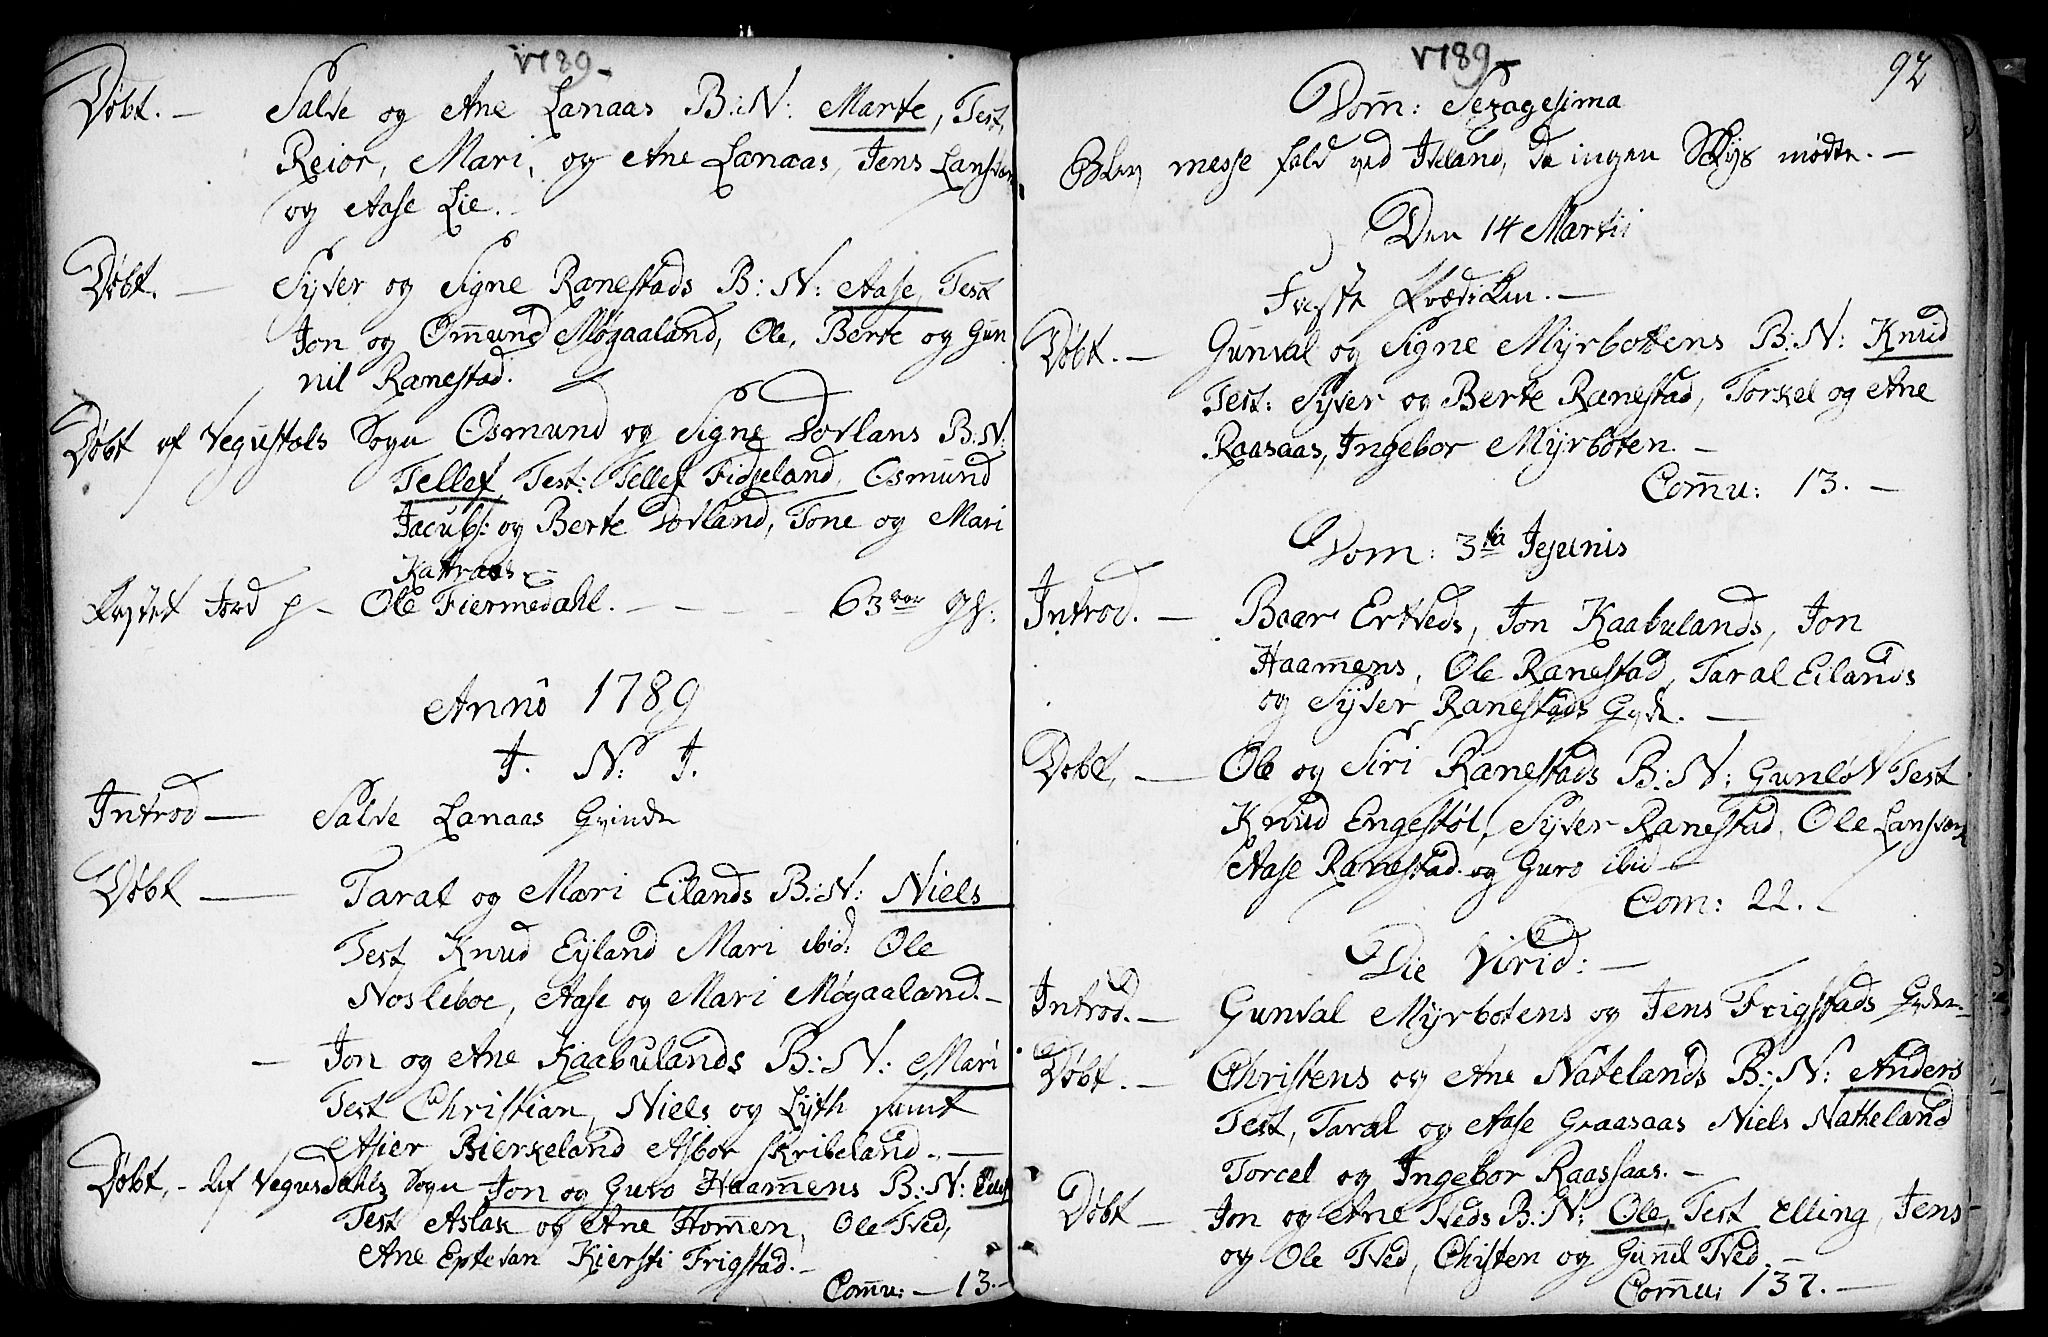 1789
Døbt. — Salve og Ane Lanaas B: N: Marte, Test,
Reior, Mari, og Ane Lanaas, Jens Lansvær
og Aase Lie.
Døbt. — Syver og Signe Ranestads B: N: Aase, Test
Jon og Omund Møgaaland, Ole, Berte og Gun
nil Ranestad.
Døbt af Vegustals Sogn Osmund og Signe Dovlans B: N:
Tellef, Test: Tellef Fidjeland, Osmund
Jacobs: og Berte Dovland, Tone og Mari
Kattraas
Kastet Jord p — Ole Fiermedahl. — — — — 63 aar gl.
Anno 1789
J. N. J.
Introd — Salve Lanaas Qvinde
Døbt — Taral og Mari Eilands B: N: Niels
Test Knud Eyland Mari ibid: Ole
Nosleboe, Aase og Mari Møgaaland. —
— Jon og Ane Kaabulands B: N: Mari
Test Christian, Niels og Lyth samt
Asier Bierkeland Asbor Skribeland. —
Døbt, - Af Vegusdahls Sogn Jon og Guro Haamens B: N:
Test Aslak og Ane Homen, Ole Tved,
Ane Eptevan Kiersti Frigstad. —
Comu: — 13. —
1789 92
Dom: Sexagesima
Blev messe fald ved Iveland, da ingen Skyds mødte. —
Den 14 Martii
Første Prædiken. —
Døbt. — Gunval og Signe Myrbottens B: N: Knud
Test: Syver og Berte Ranestad, Torkel og Ane
Raasaas, Ingebor Myrboten. —
Comu: 13. —
Dom: 3tia Jejunis
Introd. — Baar Ertveds, Jon Kaabulands, Jon
Haamens, Ole Ranestad, Taral Eilands
og Syver Ranestads Qvdr. —
Døbt, — Ole og Siri Ranestads B: N: Gunløv Test
Knud Engestøl, Syver Ranestad, Ole Lansvær
Aase Ranestad og Guro ibid —
Com: 22. —
Die Virid: —
Introd. — Gunval Myrbotens og Jens Frigstads
Døbt. — Christens og Ane Natelands B: N: Anders
Test, Taral og Aase Graasaas Niels Natheland
Torcel og Ingebor Raassaas. —
Døbt — Jon og Ane Tveds B: N: Ole, Test Elling, Jens
og Ole Tved, Christen og Gunil Tved. —
Comu: 137. —